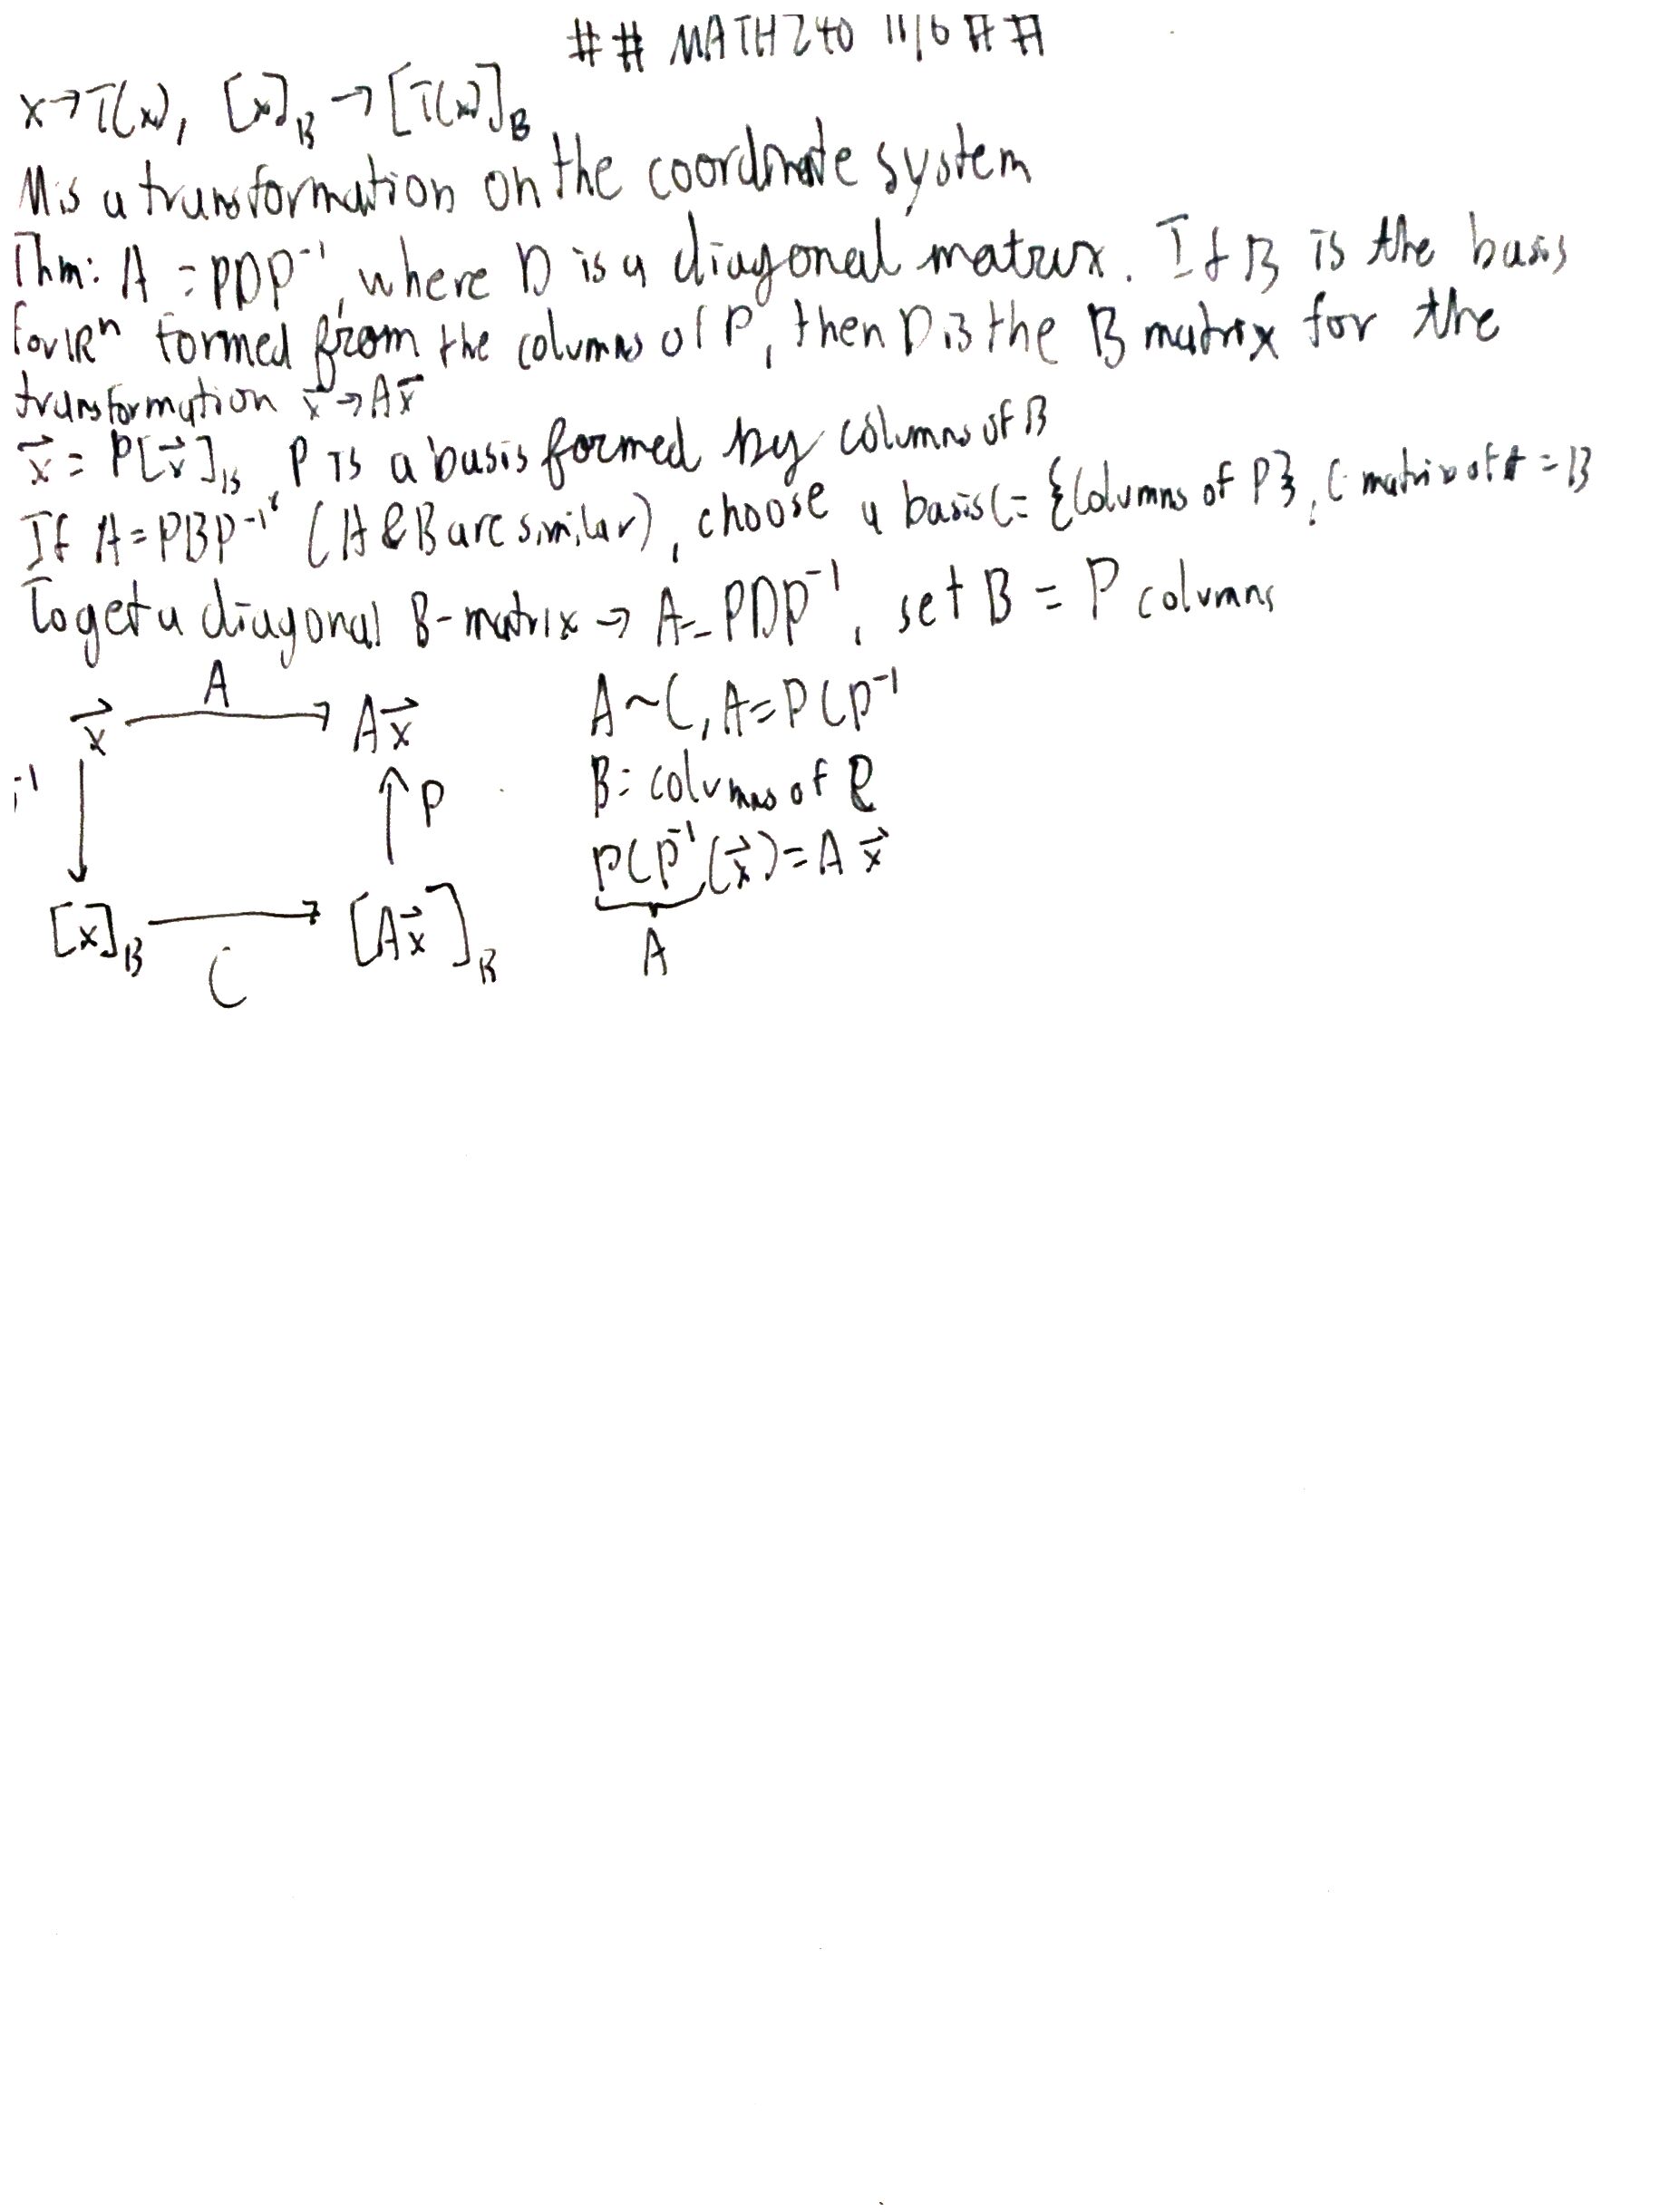 ## MATH240 11/6 ##
x→T(x), [x]_B → [T(x)]_B
M is a transformation on the coordinate system
Thm: A = PDP⁻¹, where D is a diagonal matrix. If B is the basis
for ℝⁿ formed from the columns of P, then D is the B matrix for the
transformation x⃗ → Ax⃗
x⃗ = P[x⃗]_B, P is a basis formed by columns of B
If A = PBP⁻¹ (A & B are similar), choose a basis C = {columns of P}, C matrix of A = B
To get a diagonal B-matrix → A = PDP⁻¹, set B = P columns
A
x⃗ → Ax⃗
⁻¹ ↓ ↑ P
[x]_B → [Ax⃗]_B
C
A ~ C, A = PCP⁻¹
B = columns of P
PCP⁻¹(x⃗) = Ax⃗
A